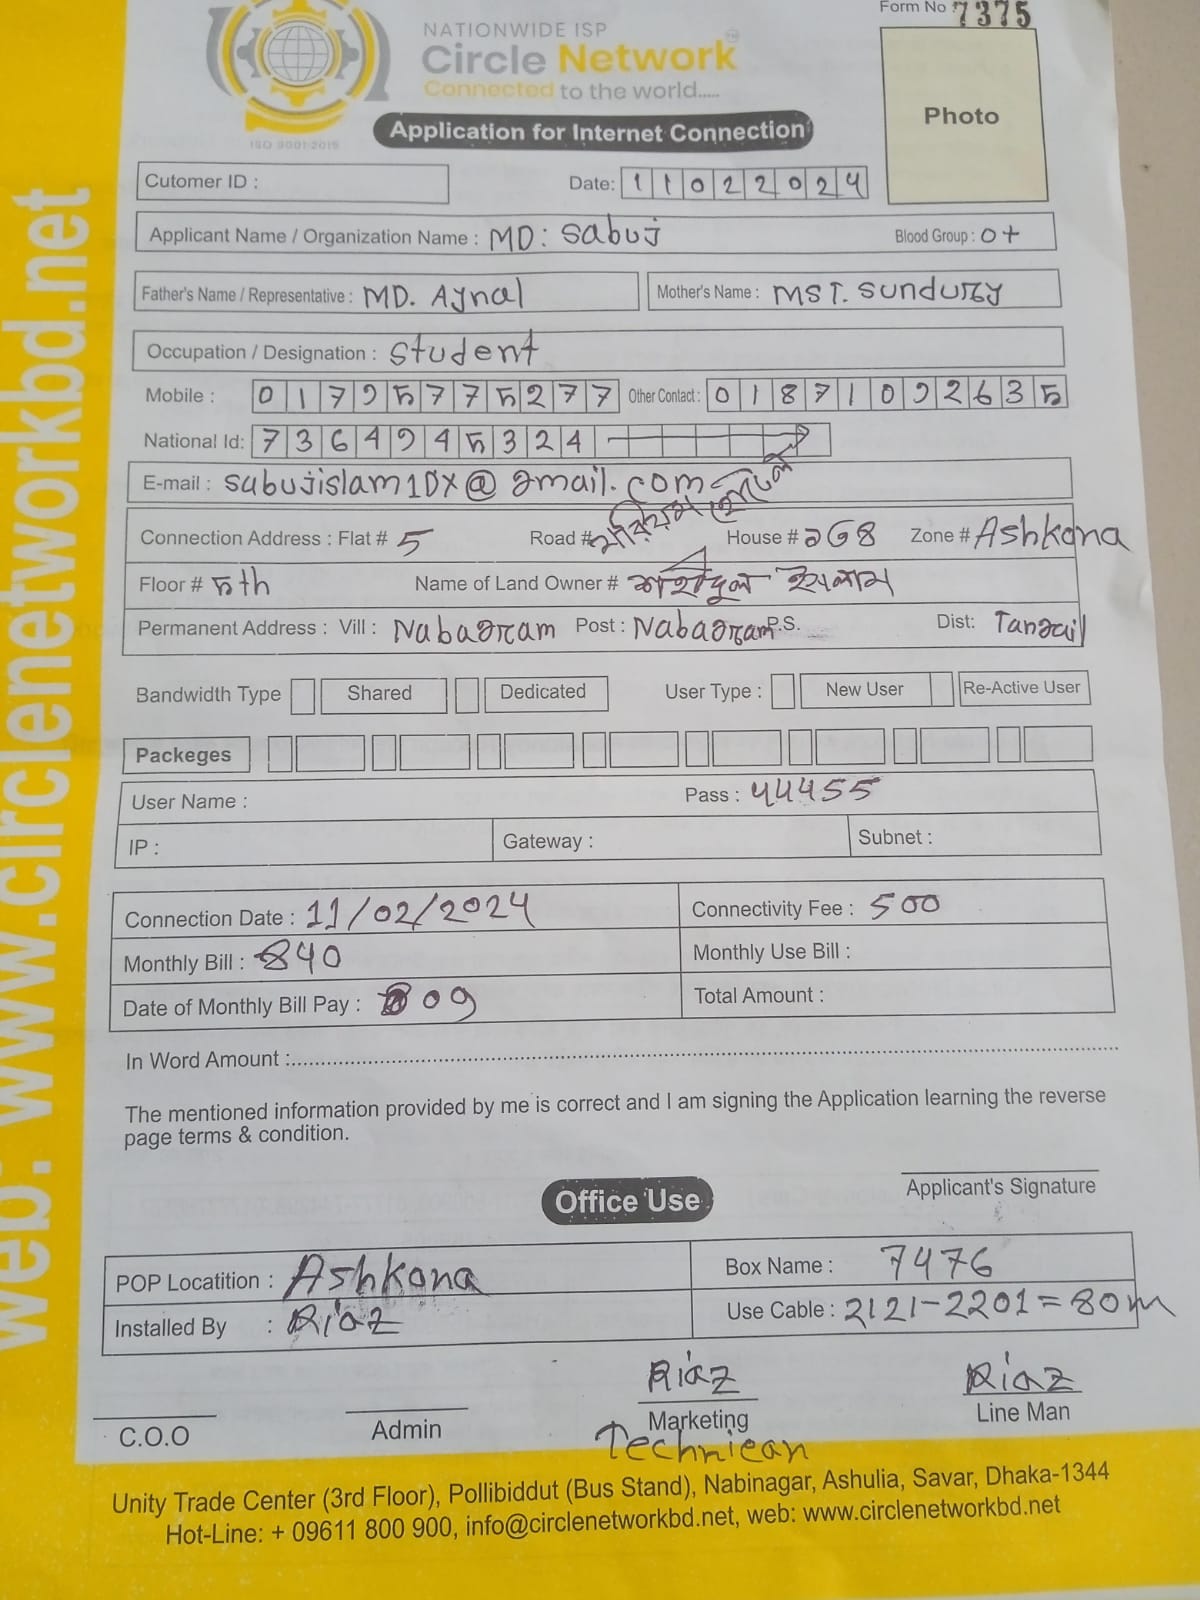 Form No 7375
NATIONWIDE ISP
Circle Network
Connected to the world.....
ISO 9001:2015
Photo
Application for Internet Connection
Cutomer ID :
Date: 11022024
Applicant Name / Organization Name : MD: Sabuj Blood Group : O+
Father's Name / Representative : MD. Aynal Mother's Name : MST. Sundury
Occupation / Designation : Student
Mobile : 01795775277 Other Contact : 01871092635
National Id: 7364945324
E-mail : sabujislam1DX@gmail.com
Connection Address : Flat # 5 Road # House # 268 Zone # Ashkona
Floor # 5th Name of Land Owner # ইসলাম
Permanent Address : Vill : Nabagram Post : Nabagram P.S. Dist: Tangail
Bandwidth Type Shared Dedicated User Type : New User Re-Active User
Packeges
User Name : Pass : 44455
IP : Gateway : Subnet :
Connection Date : 11/02/2024 Connectivity Fee : 500
Monthly Bill : 840 Monthly Use Bill :
Date of Monthly Bill Pay : 09 Total Amount :
In Word Amount :
The mentioned information provided by me is correct and I am signing the Application learning the reverse
page terms & condition.
Applicant's Signature
Office Use
POP Locatition : Ashkona Box Name : 7476
Installed By : Riaz Use Cable : 2121-2201=80m
Riaz Riaz
C.O.O Admin Marketing Line Man
Technican
Unity Trade Center (3rd Floor), Pollibiddut (Bus Stand), Nabinagar, Ashulia, Savar, Dhaka-1344
Hot-Line: + 09611 800 900, info@circlenetworkbd.net, web: www.circlenetworkbd.net
web: www.circlenetworkbd.net